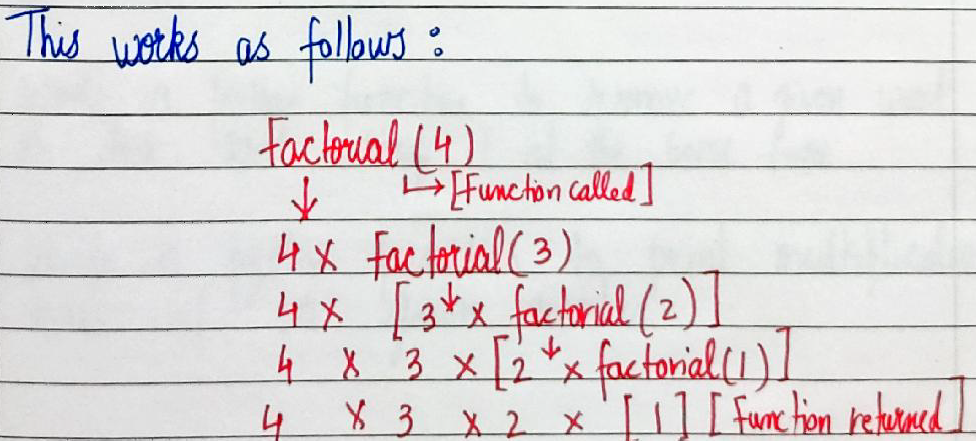 This works as follows :
factorial (4)
↓ ↳ [Function called]
4 × factorial(3)
4 × [3 ↓ × factorial(2)]
4 × 3 × [2 ↓ × factorial(1)]
4 × 3 × 2 × [1] [function returned]